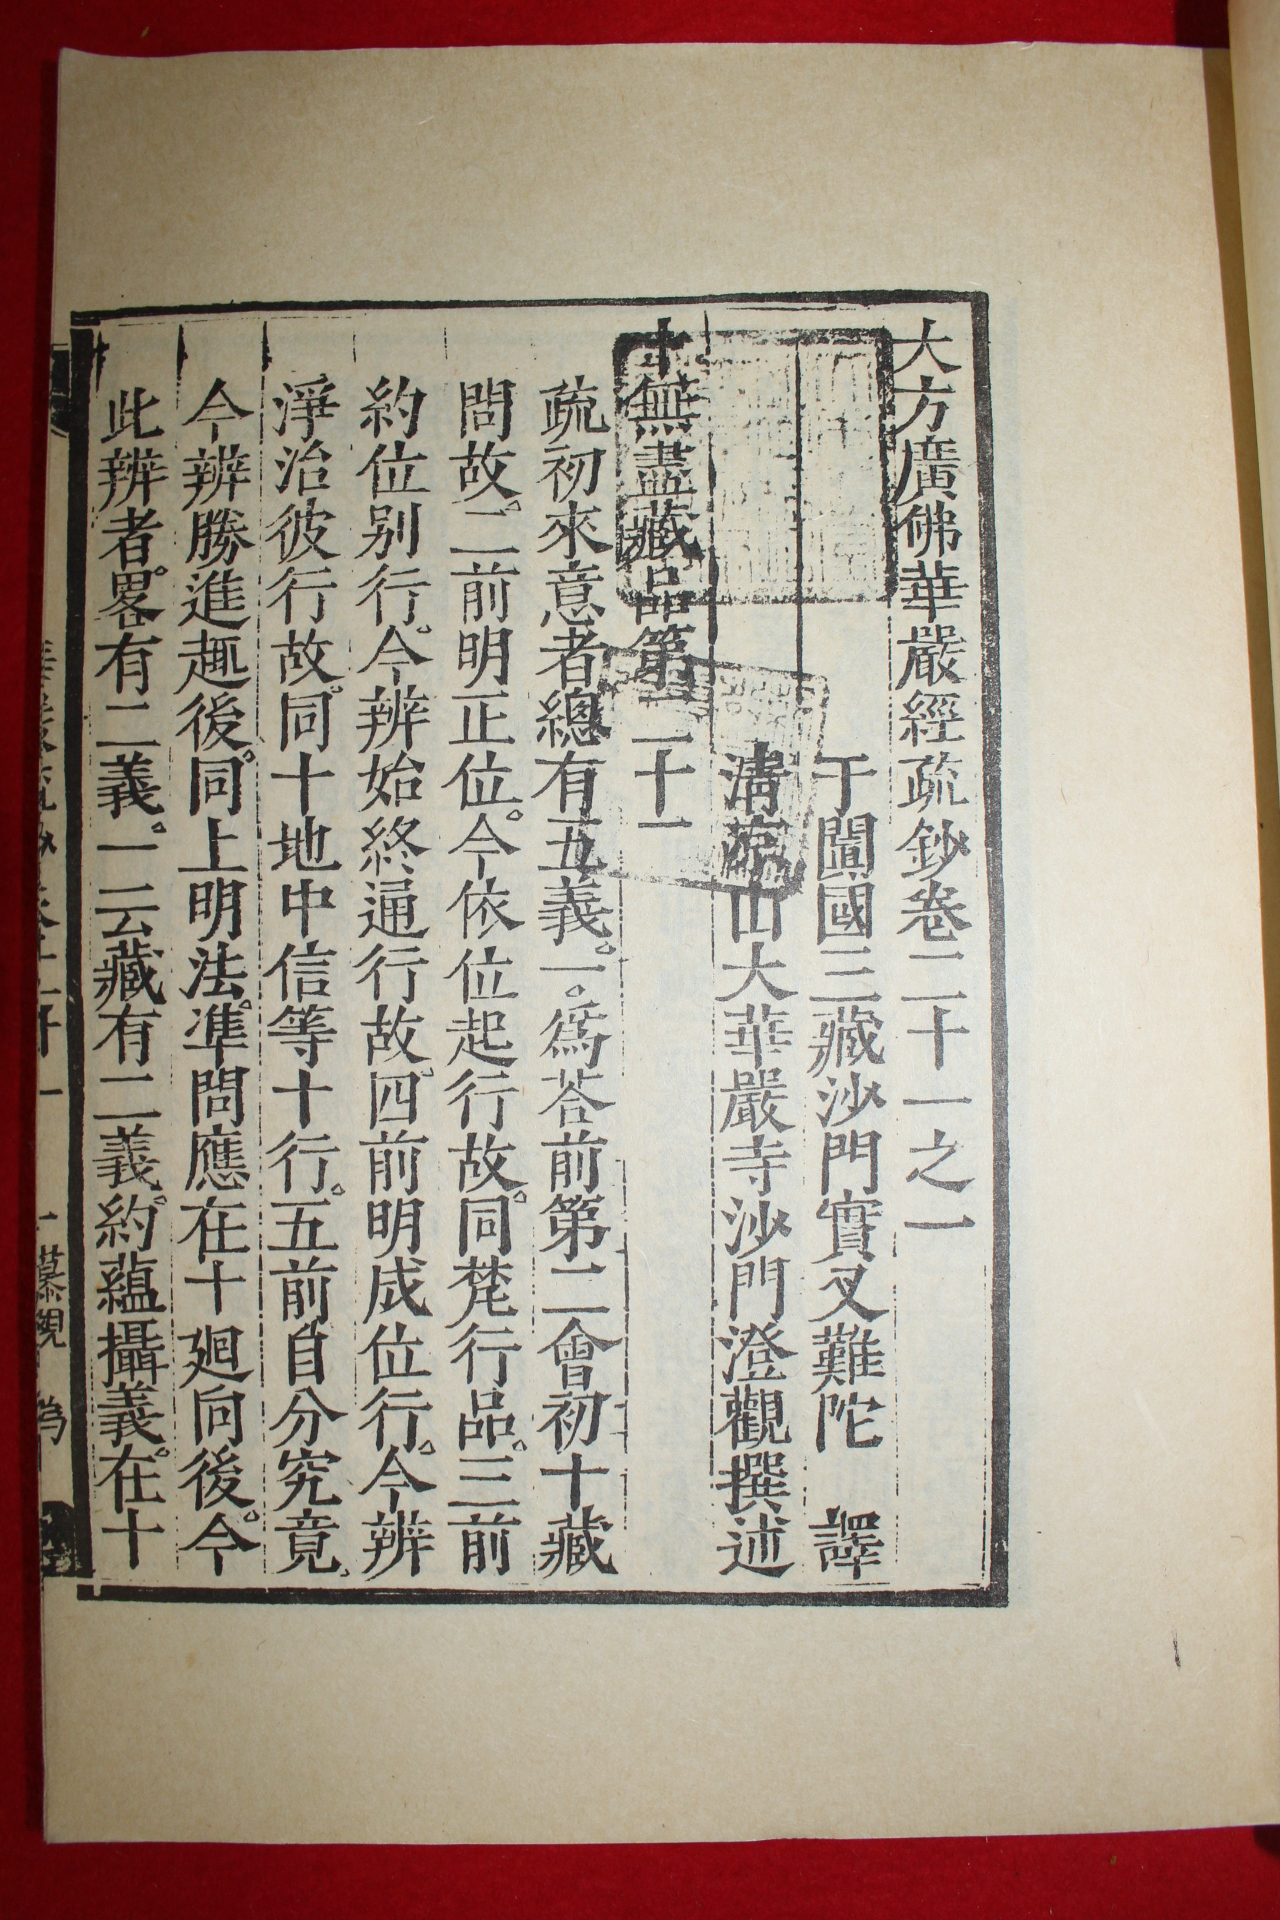 大方廣佛華嚴經疏鈔卷二十一之一
于闐國三藏沙門實叉難陀　譯
淸涼山大華嚴寺沙門澄觀撰述
十無盡藏品第二十一
疏初來意者總有五義。一。爲荅前第二會初十藏
問故。二前明正位。今依位起行故。同梵行品。三前
約位别行。今辨始終通行故。四前明成位行。今辨
淨治彼行故。同十地中信等十行。五前自分究竟。
今辨勝進趣後。同上明法。準問應在十廻向後。今
此辨者。畧有二義。一云藏有二義。約蘊攝義。在十